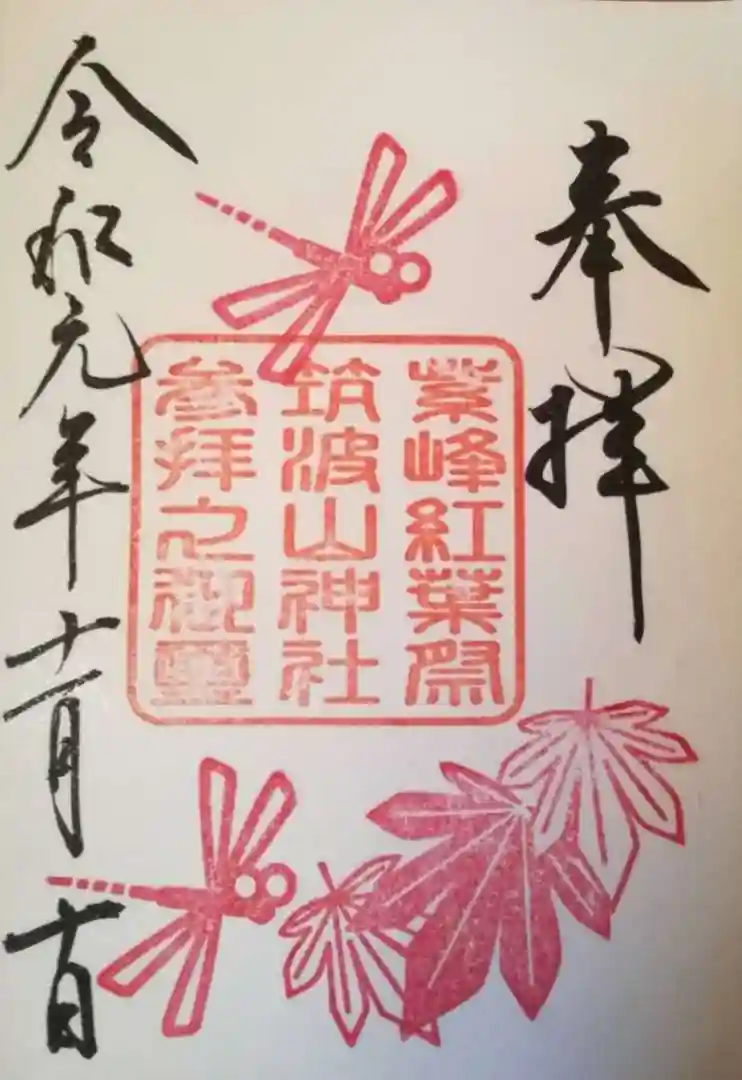 奉拝
紫峰紅葉祭
筑波山神社
参拝之御璽
令和元年十一月